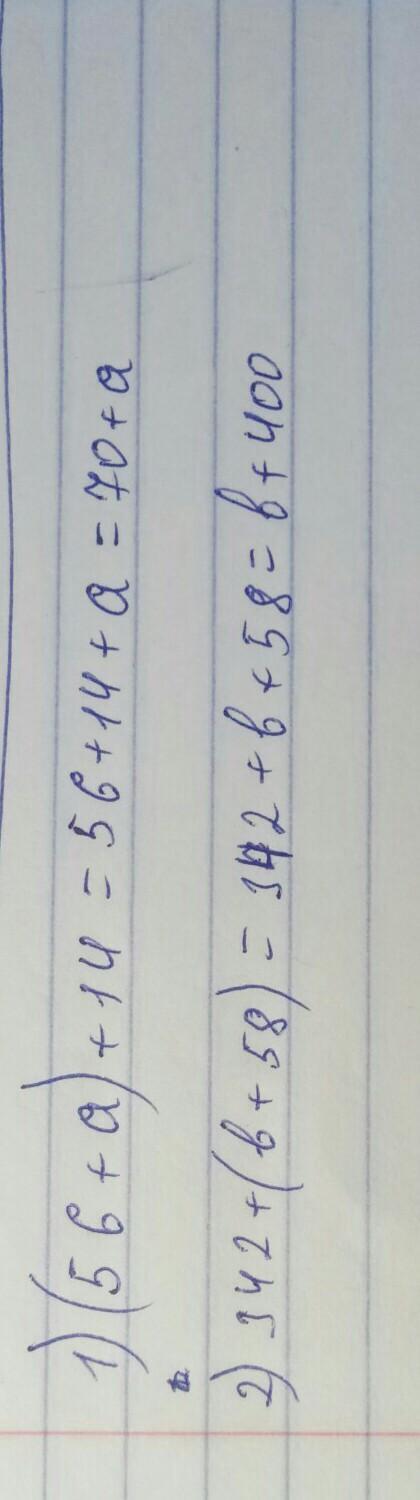 1) (56 + a) + 14 = 56 + 14 + a = 70 + a
2) 342 + (b + 58) = 342 + b + 58 = b + 400